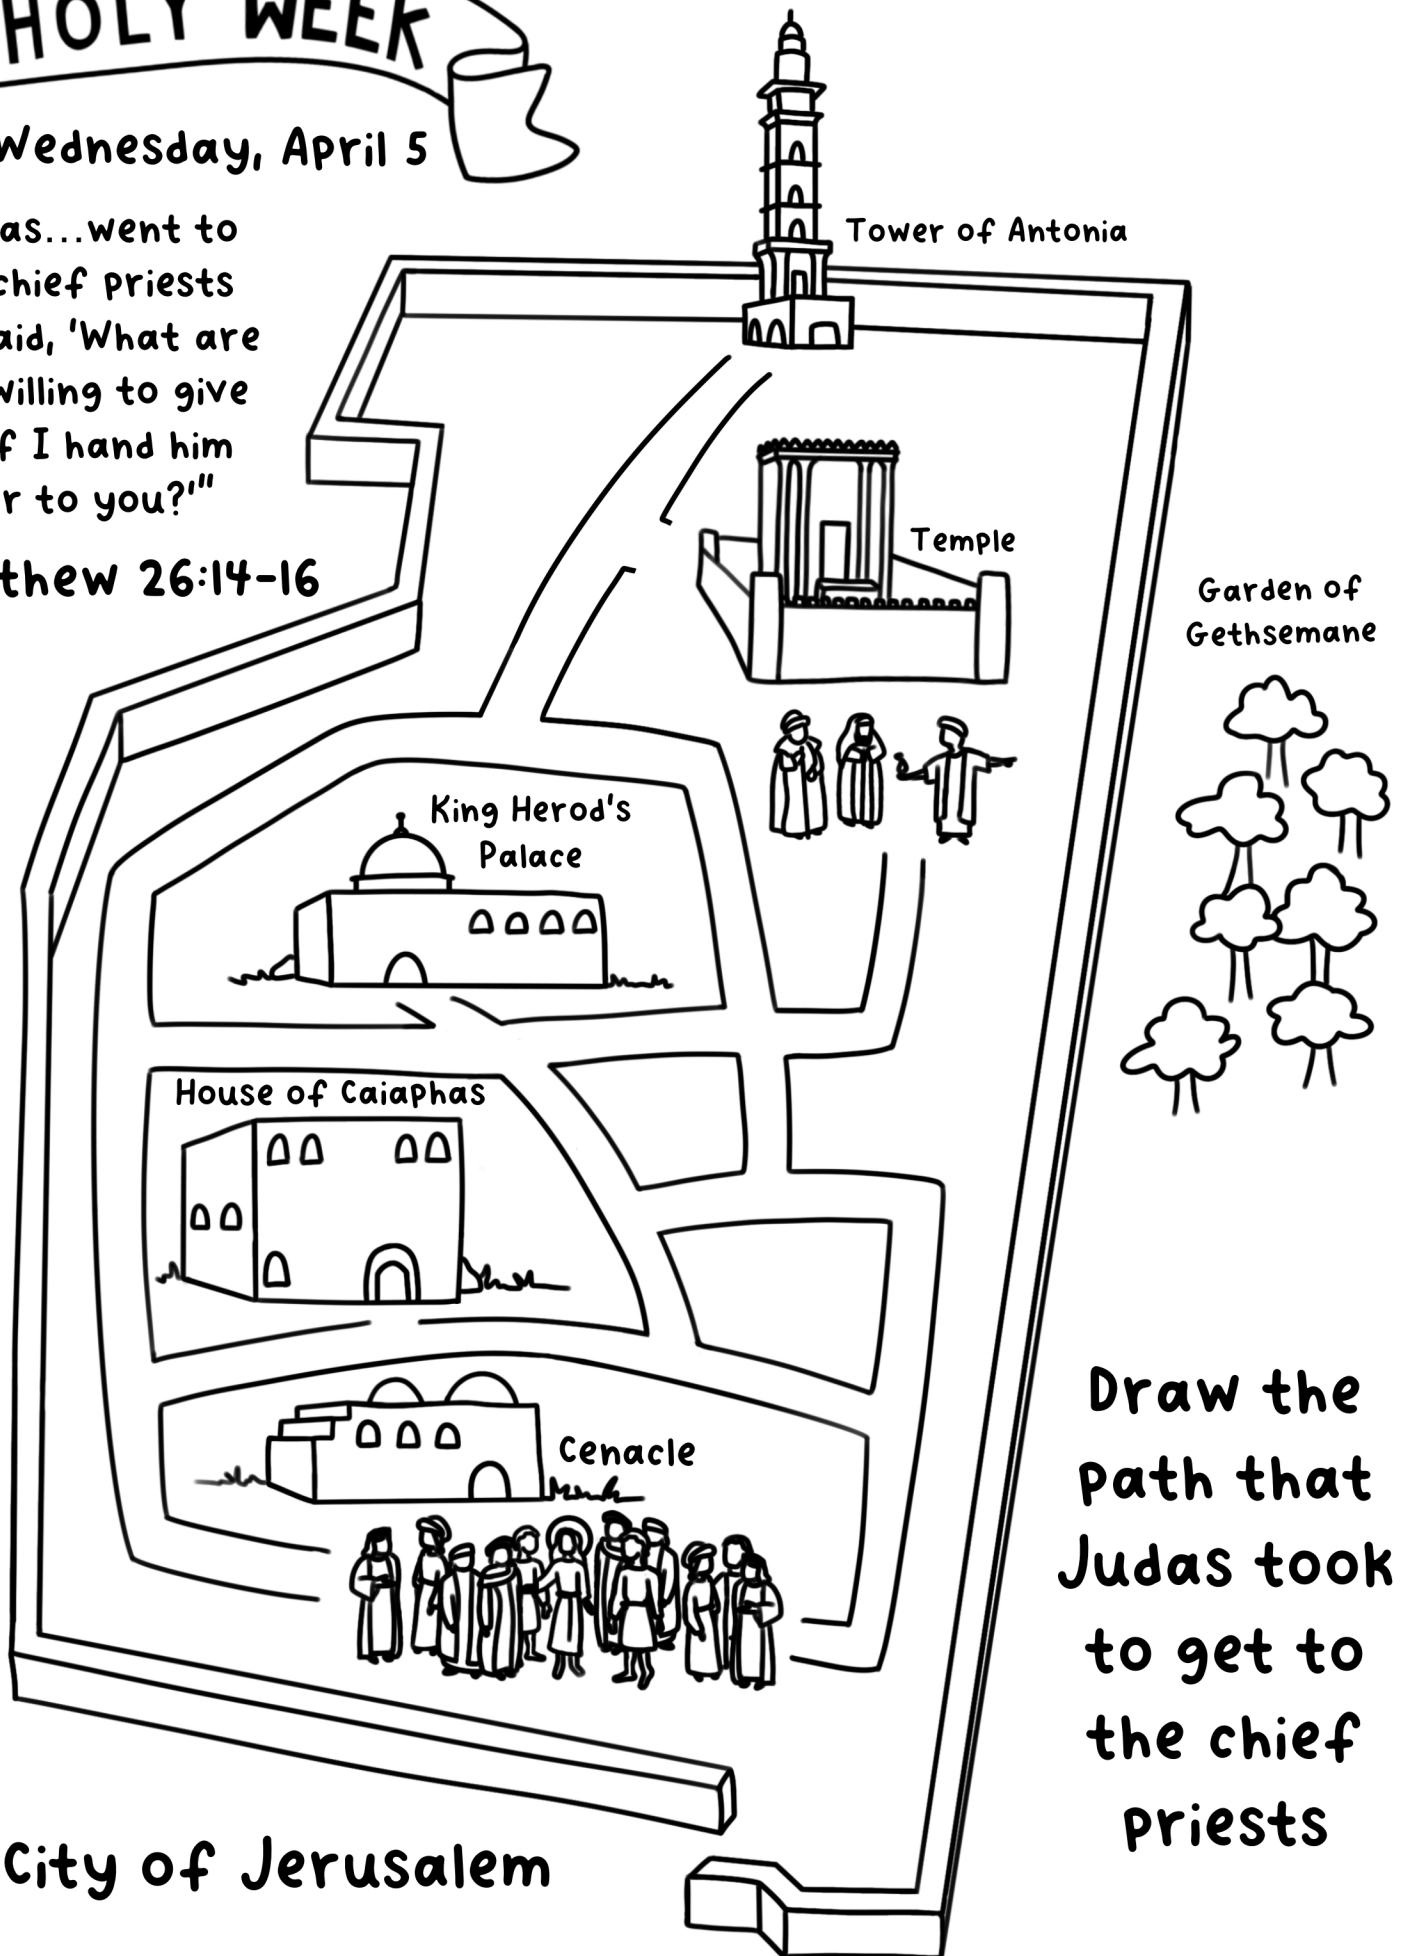 HOLY WEEK
Wednesday, April 5
as...went to
chief priests
aid, 'What are
willing to give
f I hand him
r to you?'"
thew 26:14-16
Tower of Antonia
Temple
Garden of
Gethsemane
King Herod's
Palace
House of Caiaphas
Cenacle
Draw the
path that
Judas took
to get to
the chief
priests
City of Jerusalem